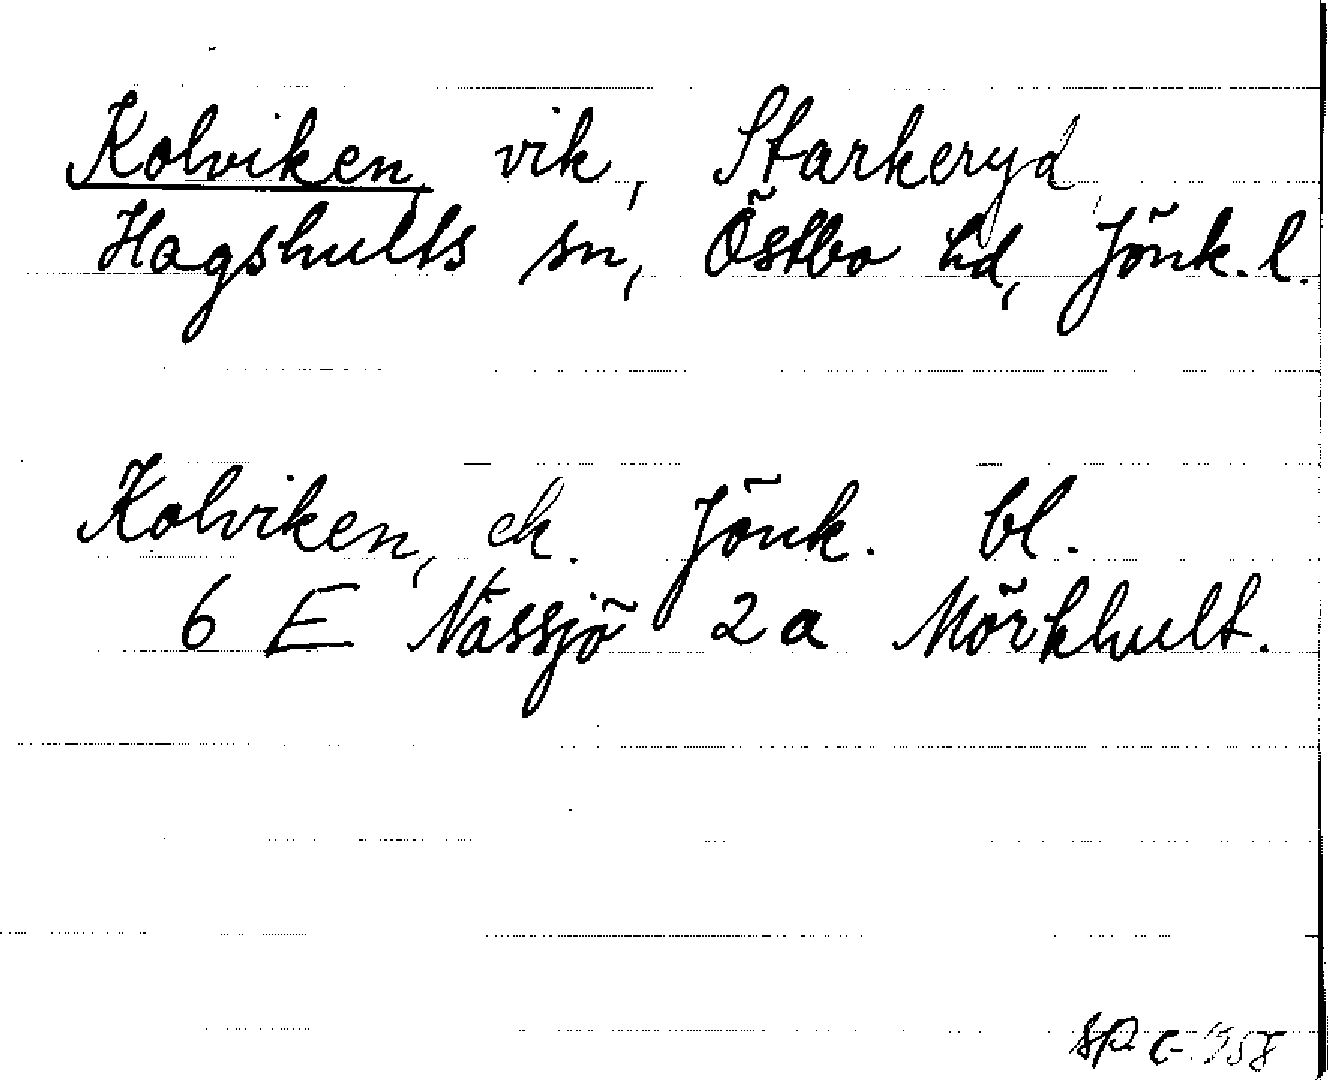 Kolviken, vik, Starkeryd,
Hagshults sn, Östbo hd, Jönk. l.
Kolviken, ek. Jönk. bl.
6 E Nässjö 2a Mörkhult.